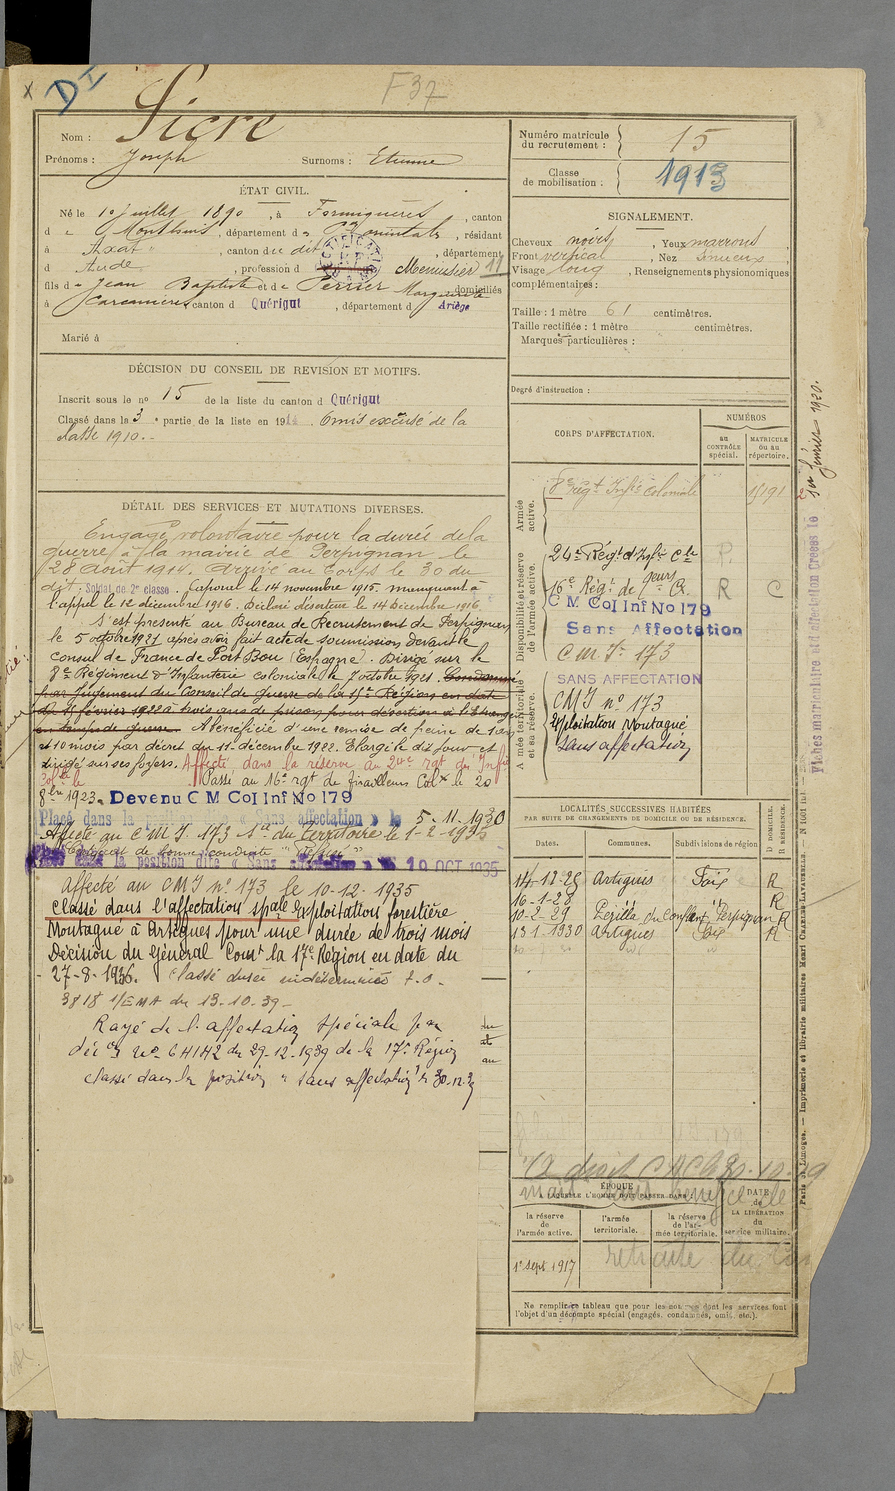 D I
F 37
Nom : Sicre
Prénoms : Joseph Surnoms : Etienne
ÉTAT CIVIL.
Né le 1er juillet 1890, à Formiguères, canton
d e Montlouis, département d es Pées Orientales, résidant
à Axat, canton du dit, département
d Aude, profession d Menuisier 11
fils d e Jean Baptiste et d e Ferrier Marguerite domiciliés
à Carcanières canton d Quérigut, département d Ariège
Marié à
DÉCISION DU CONSEIL DE REVISION ET MOTIFS.
Inscrit sous le no 15 de la liste du canton d Quérigut
Classé dans la 3 e partie de la liste en 1914. Omis excusé de la
classe 1910.-
DÉTAIL DES SERVICES ET MUTATIONS DIVERSES.
Engagé volontaire pour la durée de la
guerre à la mairie de Perpignan le
28 août 1914. Arrivé au Corps le 30 du
dit. Soldat de 2e classe. Caporal le 14 novembre 1915. manquant à
l'appel le 12 décembre 1916. Déclaré déserteur le 14 décembre 1916.
S'est présenté au Bureau de Recrutement de Perpignan
le 5 octobre 1921 après avoir fait acte de soumission devant le
Consul de France de Port Bou (Espagne). Dirigé sur le
8e Régiment d'Infanterie coloniale le 7 octobre 1921. Condamné
par jugement du Conseil de guerre de la 15e Région en date
du 11 février 1922 à trois ans de prison pour désertion à l'étranger
en temps de guerre. A bénéficié d'une remise de peine de 1 an
et 10 mois par décret du 11 décembre 1922. Elargi le dit jour et
dirigé sur ses foyers. Affecté dans la réserve au 24e rgt d'Infie
Colle le Passé au 16e rgt de Tirailleurs Colx le 20
8bre 1923. Devenu C M Col Inf No 179
Placé dans la position dite « Sans affectation » le 5-11-1930
Affecté au C M I. 173 du territoire le 1-2-1935
la position dite « Sans affectation » le 19 OCT 1935
Affecté au C M I no 173 le 10-12-1935
Classé dans l'affectation spale Exploitation forestière
Montagné à Artigues pour une durée de trois mois
Décision du Général Comt la 17e Région en date du
27-8-1936. Classé durée indéterminée
3818 1/EMA du 13-10-39-
Rayé de l'affectation spéciale par
déc on no 64142 du 29-12-1939 de la 17e Région
Classé dans la position " sans affectation" le 30-12-39
Numéro matricule
du recrutement : 15
Classe
de mobilisation : 1913
SIGNALEMENT.
Cheveux noirs, Yeux marrons,
Front vertical, Nez sinueux
Visage long, Renseignements physionomiques
complémentaires :
Taille : 1 mètre 61 centimètres.
Taille rectifiée : 1 mètre centimètres.
Marques particulières :
Degré d'instruction :
CORPS D'AFFECTATION.
NUMÉROS
au
CONTRÔLE
spécial.
MATRICULE
ou au
répertoire.
Armée
active.
8e Régt Infie coloniale 15191
Disponibilité et réserve
de l'armée active.
24e Régt d'Infie Cle P.
16e Régt de Col. R C
C M Col Inf No 179
Sans Affectation
C M I. 173
Armée territoriale
et sa réserve.
SANS AFFECTATION
C M I no 173
Exploitation Montagné
Sans affectation
LOCALITÉS SUCCESSIVES HABITÉES
PAR SUITE DE CHANGEMENTS DE DOMICILE OU DE RÉSIDENCE.
Dates. Communes. Subdivisions de région
D DOMICILE.
R RÉSIDENCE.
14-12-25 Artigues Foix R
16-1-28 " " R
10-2-29 Perpignan R
13 1-1930 Artigues Foix R
ÉPOQUE
A LAQUELLE L'HOMME DOIT PASSER DANS
la réserve
de
l'armée active.
l'armée
territoriale.
la réserve
de l'ar-
mée territoriale.
DATE
de
LA LIBÉRATION
du
service militaire.
1er sept. 1917
Ne remplir ce tableau que pour les hommes dont les services font
l'objet d'un décompte spécial (engagés, condamnés, omis, etc.).
1er février 1930.
Paris et Limoges. — Imprimerie et librairie militaires Henri CHARLES-LAVAUZELLE.